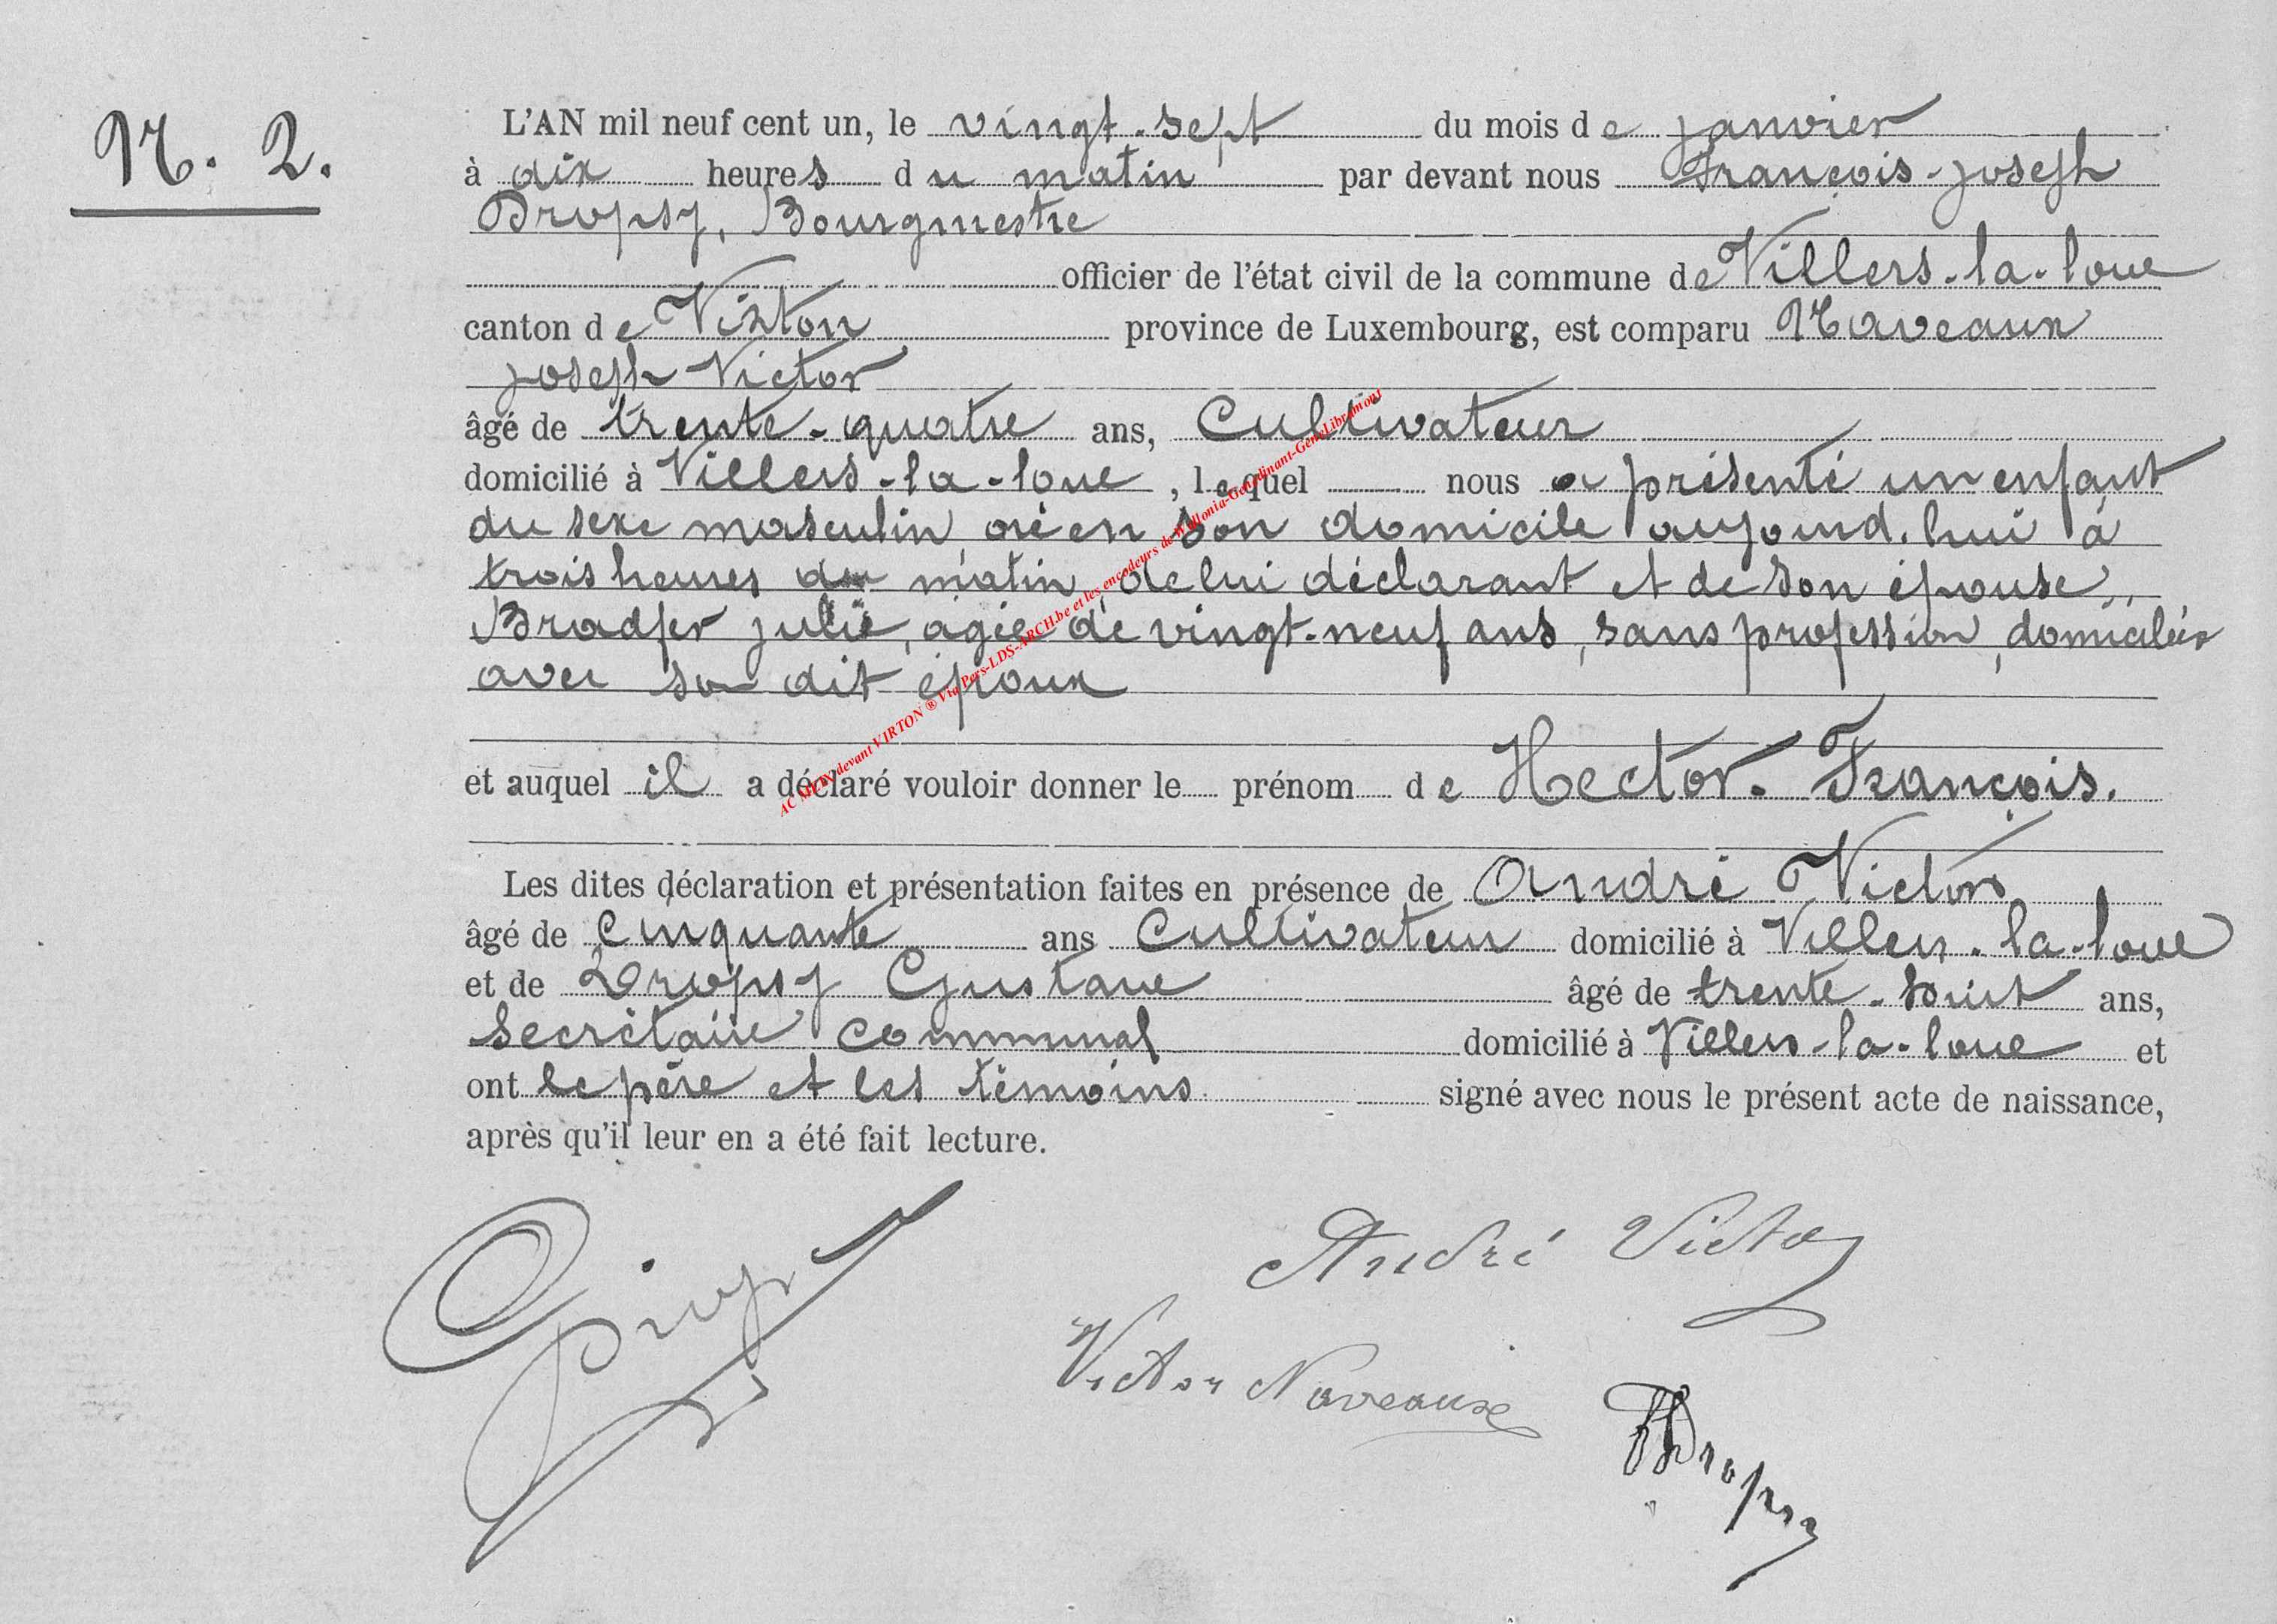 N. 2.
L'AN mil neuf cent un, le vingt-sept du mois de janvier
à dix heures du matin par devant nous François-joseph
Dropsy, Bourgmestre
officier de l'état civil de la commune de Villers-la-loue
canton de Virton province de Luxembourg, est comparu Naveaux
joseph Victor
âgé de trente-quatre ans, Cultivateur
domicilié à Villers-la-loue, lequel nous a présenté un enfant
du sexe masculin, né en son domicile aujourd'hui à
trois heures du matin, de lui déclarant et de son épouse
Bradfer julie, agée de vingt-neuf ans, sans profession, domiciliée
avec son dit époux
et auquel il a déclaré vouloir donner le prénom de Hector-François.
Les dites déclaration et présentation faites en présence de André Victor
âgé de Cinquante ans Cultivateur domicilié à Villers-la-loue
et de Dropsy Gustave âgé de trente-huit ans,
secrétaire communal domicilié à Villers-la-loue et
ont le père et les témoins signé avec nous le présent acte de naissance,
après qu'il leur en a été fait lecture.
André Victor
Victor Naveaux
Dropsy